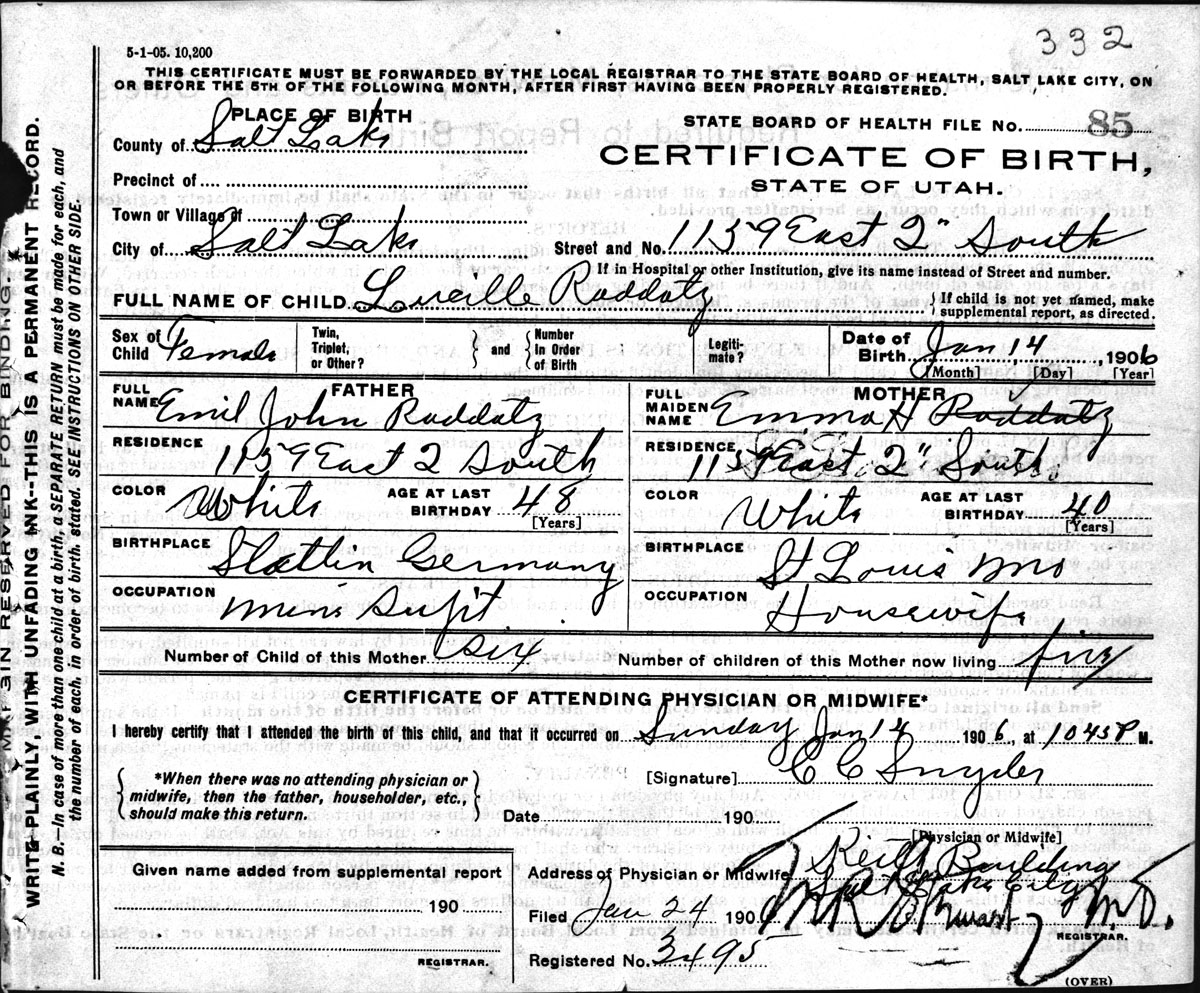 332
5-1-05. 10,200
THIS CERTIFICATE MUST BE FORWARDED BY THE LOCAL REGISTRAR TO THE STATE BOARD OF HEALTH, SALT LAKE CITY, ON
OR BEFORE THE 5TH OF THE FOLLOWING MONTH, AFTER FIRST HAVING BEEN PROPERLY REGISTERED.
PLACE OF BIRTH
STATE BOARD OF HEALTH FILE No. 85
County of Salt Lake
CERTIFICATE OF BIRTH,
STATE OF UTAH.
Precinct of
Town or Village of
City of Salt Lake Street and No. 1159 East 2" South
If in Hospital or other Institution, give its name instead of Street and number.
FULL NAME OF CHILD Lucille Raddatz { If child is not yet named, make supplemental report, as directed.
Sex of Child Female Twin, Triplet, or Other? } and { Number In Order of Birth Legiti-mate? Date of Birth Jan 14, 1906
[Month] [Day] [Year]
FATHER MOTHER
FULL NAME Emil John Raddatz FULL MAIDEN NAME Emma H Raddatz
RESIDENCE 1159 East 2 South RESIDENCE 1159 East 2" South
COLOR White AGE AT LAST BIRTHDAY 48 [Years] COLOR White AGE AT LAST BIRTHDAY 40 [Years]
BIRTHPLACE Stettin Germany BIRTHPLACE St Louis Mo
OCCUPATION Mine Supt. OCCUPATION Housewife
Number of Child of this Mother six Number of children of this Mother now living five
CERTIFICATE OF ATTENDING PHYSICIAN OR MIDWIFE*
I hereby certify that I attended the birth of this child, and that it occurred on Sunday Jan 14 1906, at 1045 P M.
{ *When there was no attending physician or midwife, then the father, householder, etc., should make this return. }
[Signature] C C Snyder
Date 190
[Physician or Midwife]
Given name added from supplemental report
Address of Physician or Midwife Keith Building
Salt Lake City
190
Filed Jan 24 1906 M.D.
REGISTRAR.
REGISTRAR.
Registered No. 3495
(OVER)
RESERVED FOR BINDING.
WRITE PLAINLY WITH UNFADING INK--THIS IS A PERMANENT RECORD.
N. B. In case of more than one child at a birth, a SEPARATE RETURN must be made for each, and
the number of each, in order of birth, stated. SEE INSTRUCTIONS ON OTHER SIDE.